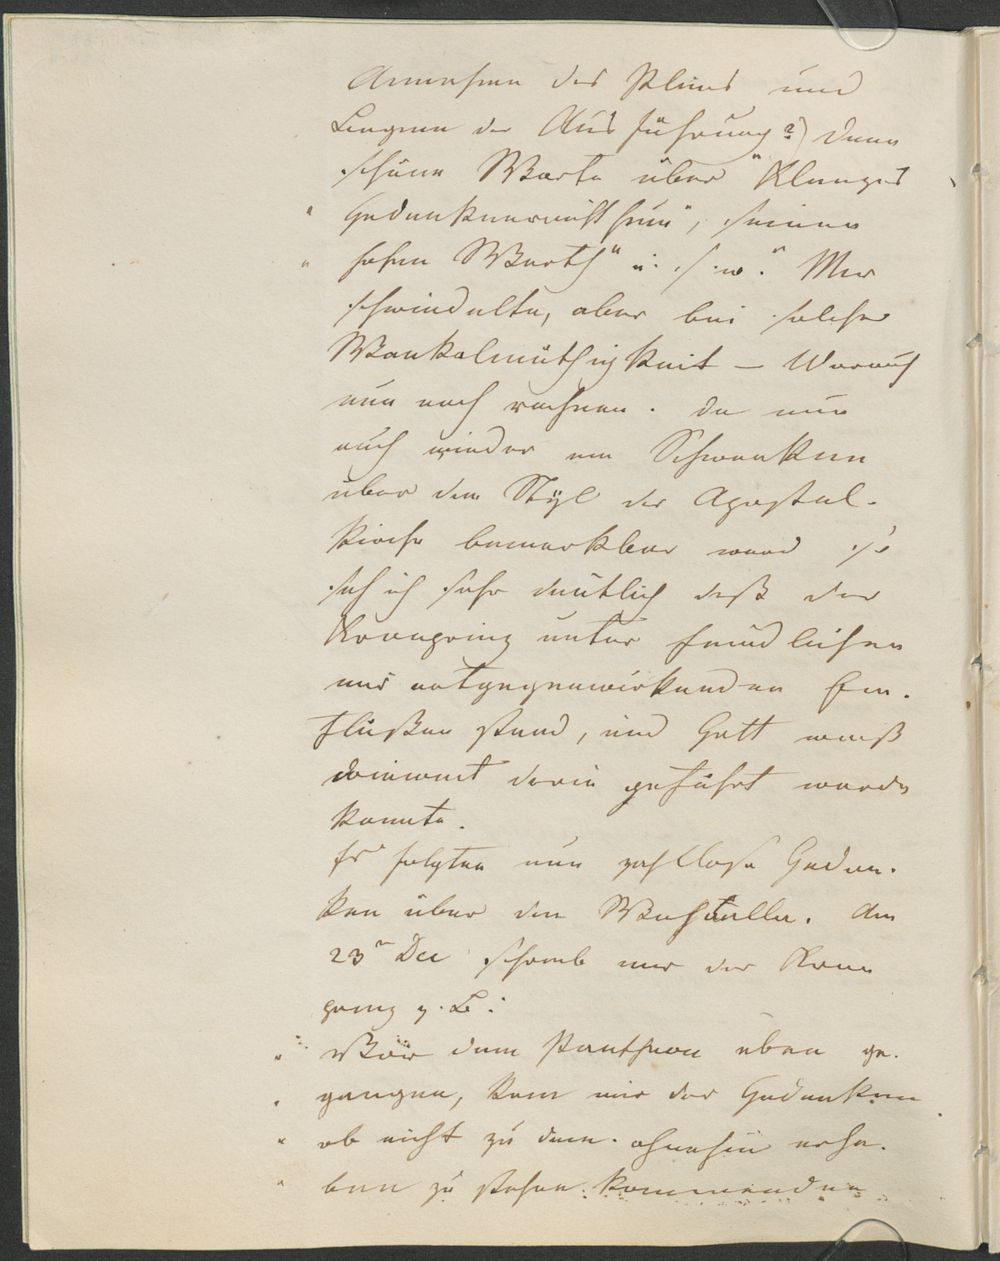 Annahme des Planes und
Leugnen der Ausführung?) dann
schöne Worte über "Klenzes
" Gedankenreichthum", seinen
" hohen Werth" u. s. w." Mir
schwindelte, aber bei solcher
Wankelmüthigkeit — Worauf
nun noch rechnen. Da nun
auch wieder ein Schwanken
über den Styl der Apostel-
kirche bemerkbar ward so
sah ich sehr deutlich daß der
Kronprinz unter feindlichen
mir entgegenwirkenden Ein-
flüßen stand, und Gott weiß
wie weit darin geführt werden
konnte.
Es folgten nun zahllose Gedan-
ken über die Walhalla. Am
23n Dec schrieb mir der Kron
prinz z. B:
" Vor dem Pantheon eben ge-
" gangen, kam mir der Gedanken
" ob nicht zu dem ohnehin erha-
" ben zu stehen kommenden